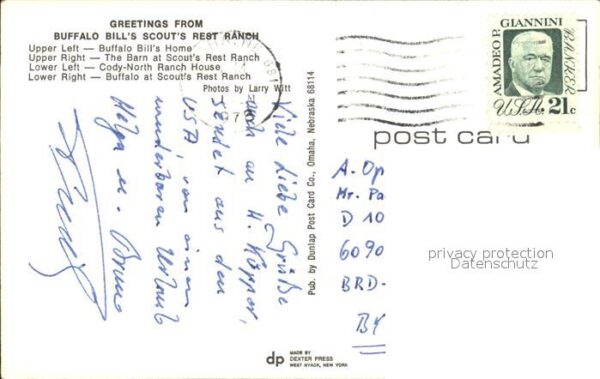 GREETINGS FROM
BUFFALO BILL'S SCOUT'S REST RANCH
Upper Left — Buffalo Bill's Home
Upper Right — The Barn at Scout's Rest Ranch
Lower Left — Cody-North Ranch House
Lower Right — Buffalo at Scout's Rest Ranch
Photos by Larry Witt
Viele liebe Grüße
auch an H. Küpper,
sendet aus den
USA von einem
wunderbaren Urlaub
Helga u. Bruno
Pub. by Dunlap Post Card Co., Omaha, Nebraska 68114
AMADEO P. GIANNINI
BANKER
U.S.A. 21c
post card
A. Op
Mr. Pa
D 10
6090
BRD-
privacy protection
Datenschutz
dp
MADE BY
DEXTER PRESS
WEST NYACK, NEW YORK